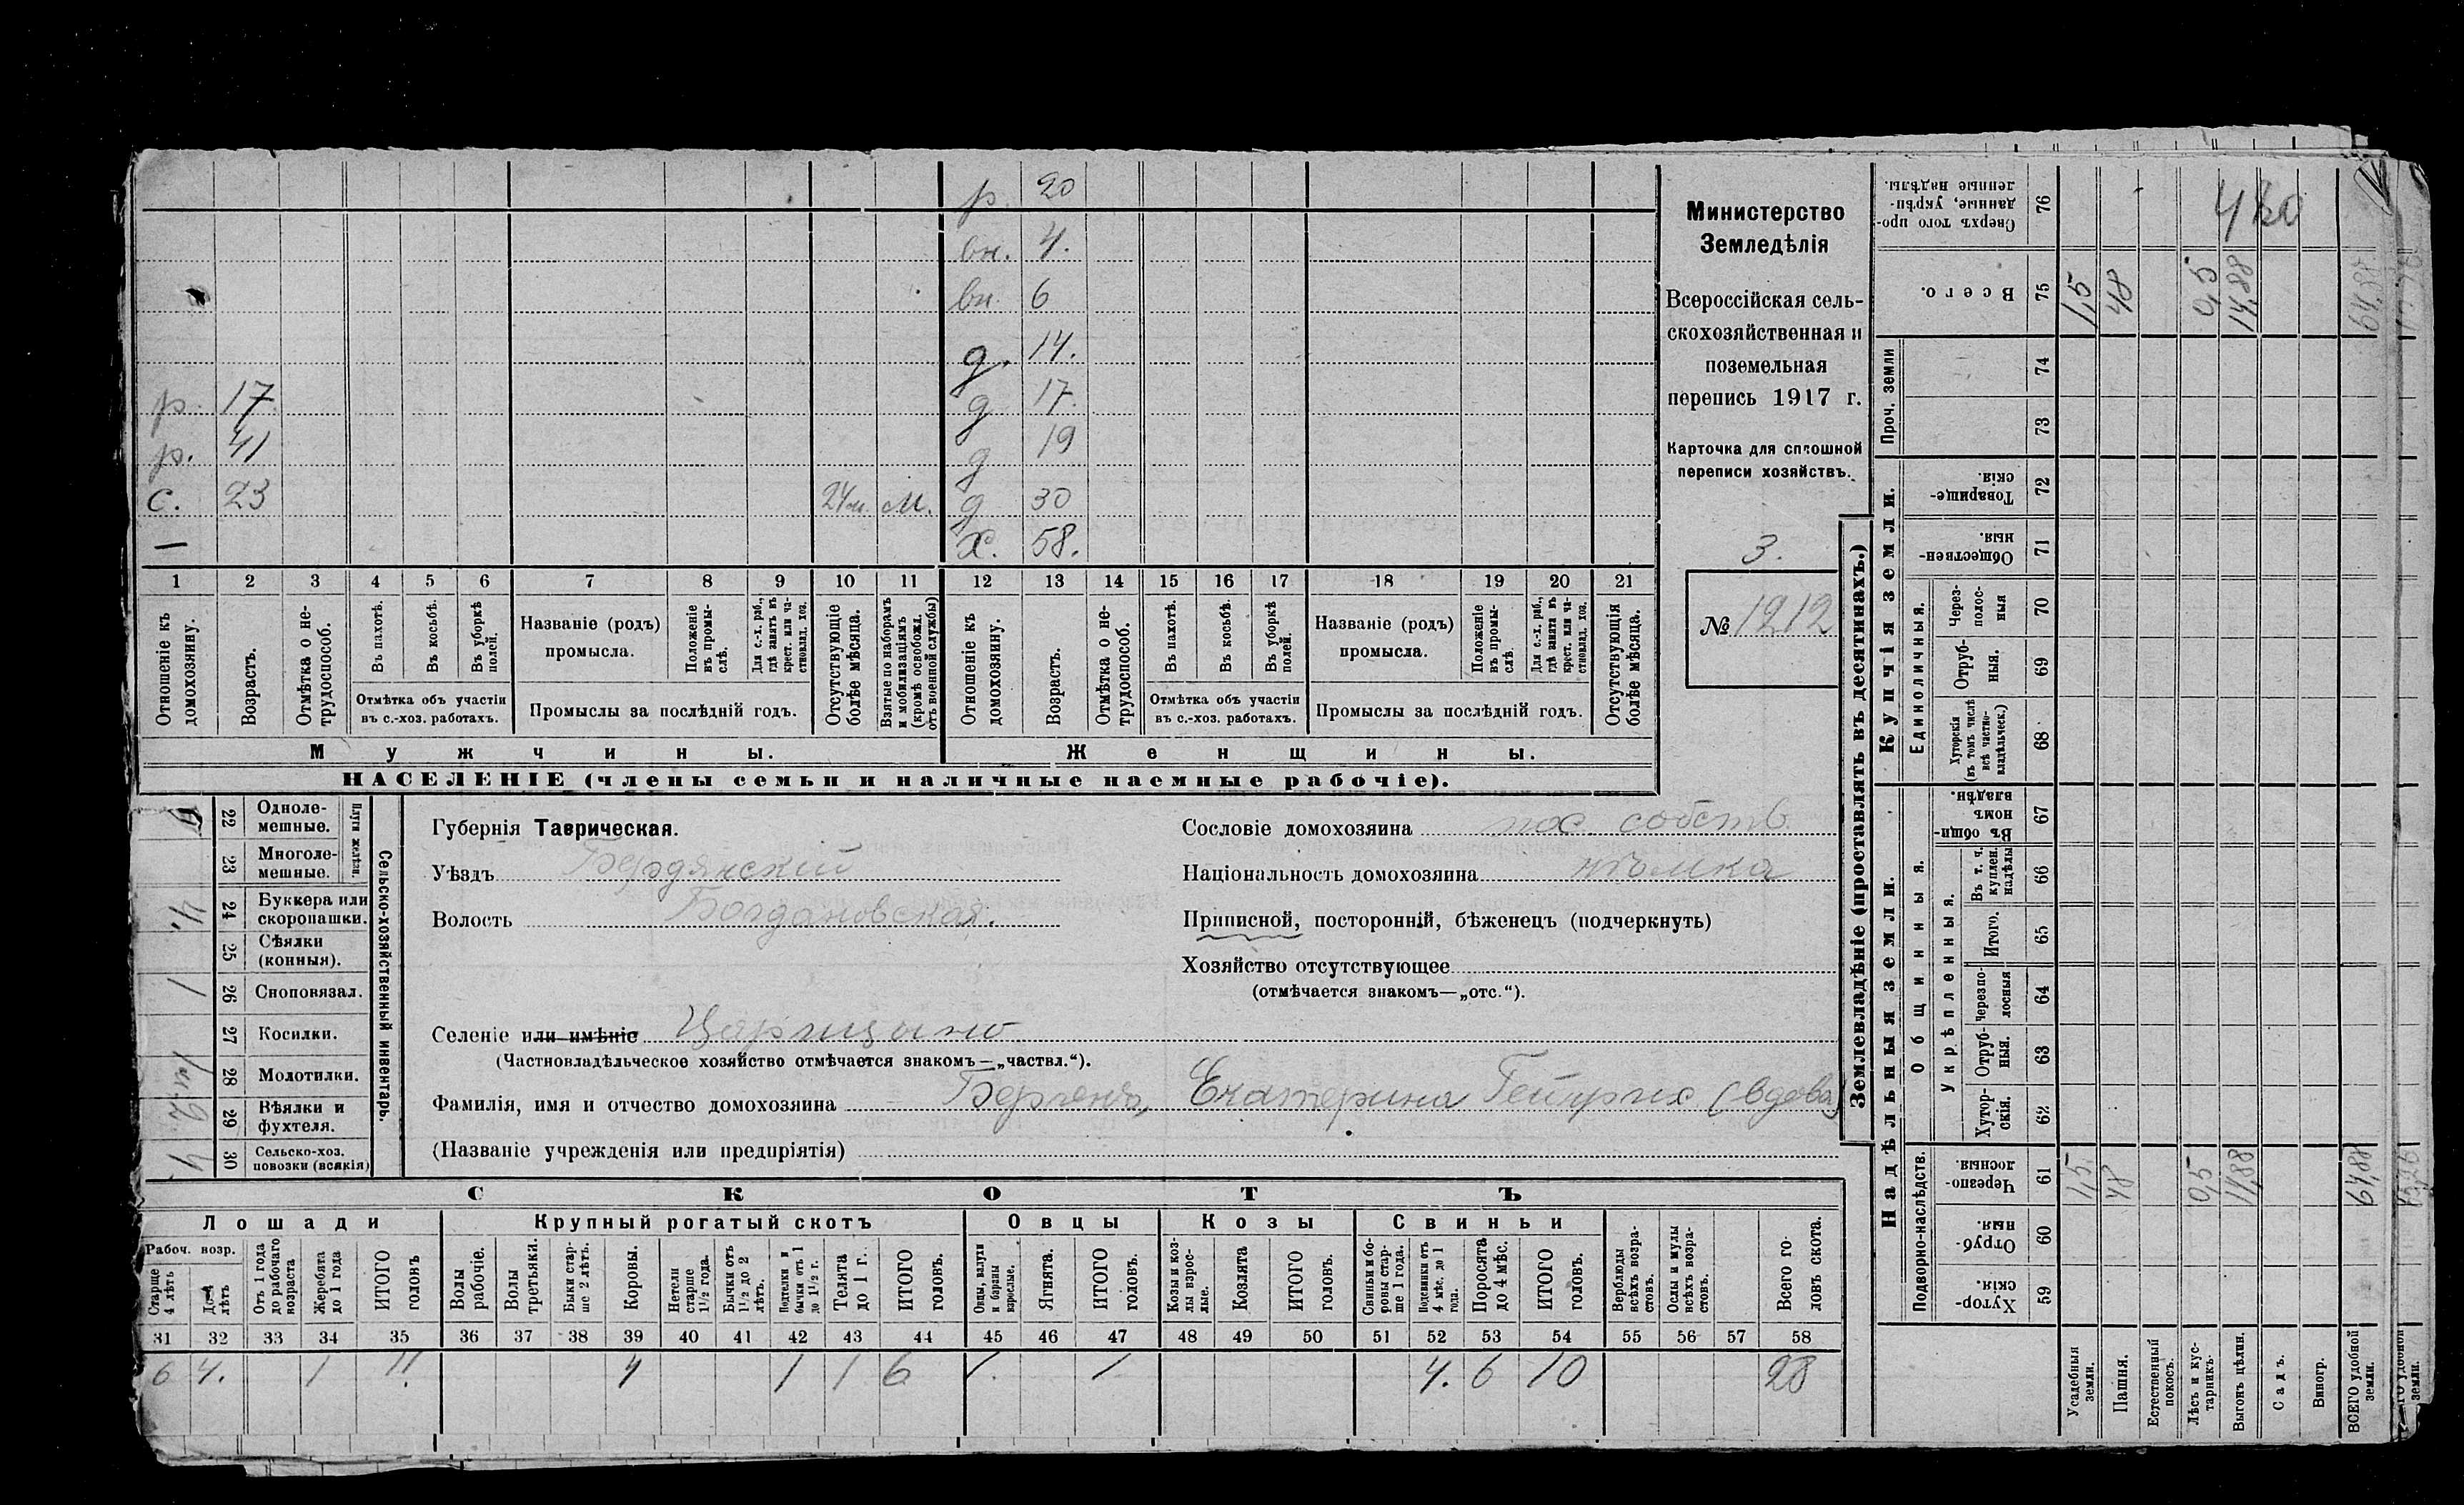 р. 20
вн. 4.
вн. 6
д. 14.
р. 17 д 17.
р. 41 д 19
с. 23 24 м. м. д 30
— х. 58.
1 2 3 4 5 6 7 8 9 10 11 12 13 14 15 16 17 18 19 20 21
Отношеніе къ домохозяину.
Возрастъ.
Отмѣтка о нетрудоспособ.
Въ пахотѣ.
Въ косьбѣ.
Въ уборкѣ полей.
Отмѣтка объ участіи
въ с.-хоз. работахъ.
Названіе (родъ)
промысла.
Положеніе въ промыслѣ.
Для с.-х. раб., гдѣ занятъ въ крест. или частновлад. хоз.
Промыслы за послѣдній годъ.
Отсутствующіе болѣе мѣсяца.
Взятые по наборамъ и мобилизаціямъ (кромѣ освобожд. отъ военной службы)
Отношеніе къ домохозяину.
Возрастъ.
Отмѣтка о нетрудоспособ.
Въ пахотѣ.
Въ косьбѣ.
Въ уборкѣ полей.
Отмѣтка объ участіи
въ с.-хоз. работахъ.
Названіе (родъ)
промысла.
Положеніе въ промыслѣ.
Для с.-х. раб., гдѣ занята въ крест. или частновлад. хоз.
Промыслы за послѣдній годъ.
Отсутствующія болѣе мѣсяца.
Мужчины.
Женщины.
НАСЕЛЕНІЕ (члены семьи и наличные наемные рабочіе).
Министерство
Земледѣлія
Всероссійская сель-
скохозяйственная и
поземельная
перепись 1917 г.
Карточка для сплошной
переписи хозяйствъ.
3.
№ 1212
Плуги желѣзн.
22 Одноле-
мешные.
23 Многоле-
мешные.
24 Буккера или
скоропашки. 4.
25 Сѣялки
(конныя).
26 Сноповязал. 1
27 Косилки.
28 Молотилки.
29 Вѣялки и
фухтеля. 2.
30 Сельско-хоз.
повозки (всякія) 4
Сельско-хозяйственный инвентарь.
Губернія Таврическая.
Уѣздъ Бердянскій
Волость Богдановская.
Селеніе или имѣніе Царицыно
(Частновладѣльческое хозяйство отмѣчается знакомъ—„частвл.“).
Фамилія, имя и отчество домохозяина Бергенъ, Екатерина Гейнрих (вдова)
(Названіе учрежденія или предпріятія)
Сословіе домохозяина пос. собств.
Національность домохозяина нѣмка
Приписной, посторонній, бѣженецъ (подчеркнуть)
Хозяйство отсутствующее
(отмѣчается знакомъ—„отс.“).
СКОТЪ
Лошади Крупный рогатый скотъ Овцы Козы Свиньи
Рабоч. возр.
Старше 4 лѣтъ
До 4 лѣтъ
Отъ 1 года до рабочаго возраста
Жеребята до 1 года
ИТОГО головъ
Волы рабочіе.
Волы третьяки.
Быки старше 2 лѣтъ.
Коровы.
Нетели старше 1½ года.
Бычки отъ 1½ до 2 лѣтъ.
Подтелки и бычки отъ 1 до 1½ г.
Телята до 1 г.
ИТОГО головъ.
Овцы, валухи и бараны взрослые.
Ягнята.
ИТОГО головъ.
Козы и козлы взрослые.
Козлята
ИТОГО головъ.
Свиньи и боровы старше 1 года.
Подсвинки отъ 4 мѣс. до 1 года.
Поросята до 4 мѣс.
ИТОГО головъ.
Верблюды всѣхъ возрастовъ.
Ослы и мулы всѣхъ возрастовъ.
Всего головъ скота.
31 32 33 34 35 36 37 38 39 40 41 42 43 44 45 46 47 48 49 50 51 52 53 54 55 56 57 58
6 4. 1 11 4 1 1 6 1. 1 4. 6 10 28
Землевладѣніе (проставлять въ десятинахъ.)
Купчія земли.
Надѣльныя земли.
Сверхъ того проданные, укрѣпленные надѣлы. 76
480
Всего. 75 1,5 48 0,5 14,88 64,88
Проч. земли 74
73
Товарищескія. 72
Общественныя. 71
Единоличныя.
Черезполосныя 70
Отрубныя. 69
Хуторскія (въ томъ числѣ всѣ частновладѣльческ.) 68
Общинныя.
Въ общинномъ владѣн. 67
Укрѣпленныя.
Въ т. ч. куплен. надѣлы 66
Итого. 65
Черезполосныя 64
Отрубныя. 63
Хуторскія. 62
Подворно-наслѣдств.
Черезполосныя. 61 1,5 48 0,5 14,88 64,88
Отрубныя. 60
Хуторскія. 59
Усадебныя земли.
Пашня.
Естественный покосъ.
Лѣсъ и кустарникъ.
Выгонъ цѣлин.
Садъ.
Виногр.
ВСЕГО удобной земли.